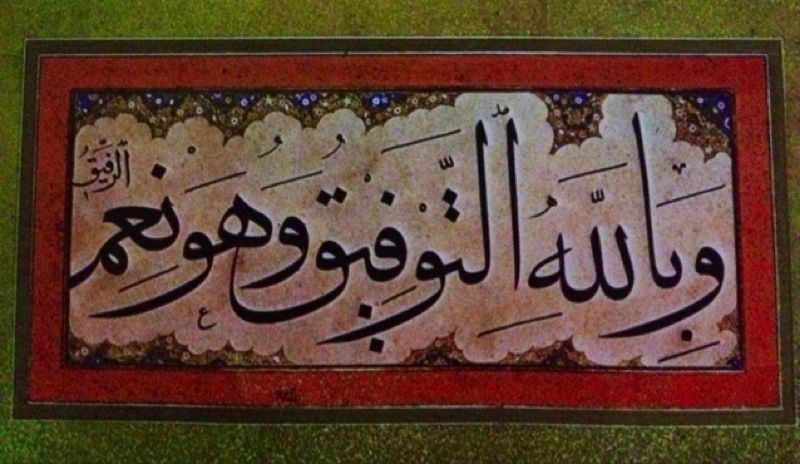 وَبِاللّٰهِ التَّوْفِيقُ وَهُوَ نِعْمَ
الرَّفِيقُ